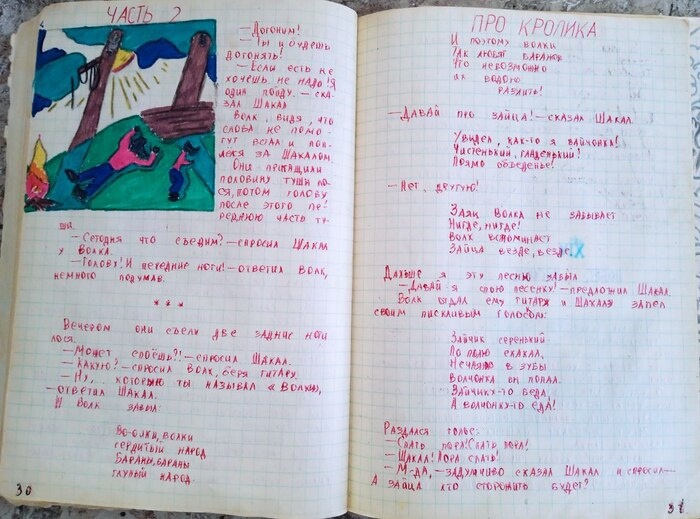 ЧАСТЬ 2
— Догоним!
— Ты и будешь
догонять!
— Если есть не
хочешь, не надо! Я
один пойду. — ска-
зал Шакал.
Волк, видя, что
слова не помо-
гут встал и поп-
лёлся за Шакалом.
Они притащили
половину туши ло-
ся, потом голову
после этого пе-
реднюю часть ту-
ши.
— Сегодня что съедим? — спросил Шакал
у Волка.
— Голову! И передние ноги! — ответил Волк,
немного подумав.
* * *
Вечером они съели две задние ноги
лося.
— Может споёшь?! — спросил Шакал.
— Какую? — спросил Волк, беря гитару.
— Ну, которую ты называл «Волки»,
— ответил Шакал.
И Волк завыл:
Во-олки, волки
сердитый народ
Бараны, бараны
глупый народ.
30
ПРО КРОЛИКА
И поэтому волки
Так любят баранов
Что невозможно
их водою
разлить!
— Давай про зайца! — сказал Шакал.
Увидел, как-то я зайчонка!
Чистенький, гладенький!
Прямо объеденье!
— Нет, другую!
Заяц Волка не забывает
Нигде, нигде!
Волк вспоминает
Зайца везде, везде.
Дальше я эту песню забыл.
— Давай я спою песенку! — предложил Шакал.
Волк отдал ему гитару и Шакал запел
своим пискливым голосом:
Зайчик серенький
По полю скакал,
Нечаяно в зубы
Волчонка он попал.
Зайчику-то беда,
А волчонку-то еда!
Раздался голос:
— Спать пора! Спать пора!
— Шакал! Пора спать!
— М-да, — задумчиво сказал Шакал и спросил —
А зайца кто сторожить будет?
31